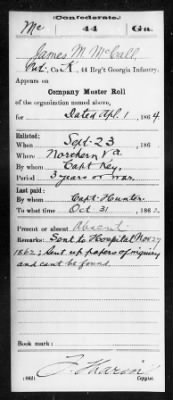 (Confederate.)
Mc 44 Ga.
James M. McCrall
Pvt., Co. K, 44 Reg't Georgia Infantry.
Appears on
Company Muster Roll
of the organization named above,
for Dated Apl. 1, 1864
Enlisted:
When Sept. 23, 186
Where Northern Va
By whom Capt Key,
Period 3 years or war.
Last paid:
By whom Capt. Hunter.
To what time Oct 31, 1862.
Present or absent Absent
Remarks: Sent to Hospital Nov 27
1862; Sent up papers of inquiry
and cant be found.
Book mark:
(642) Copyist.